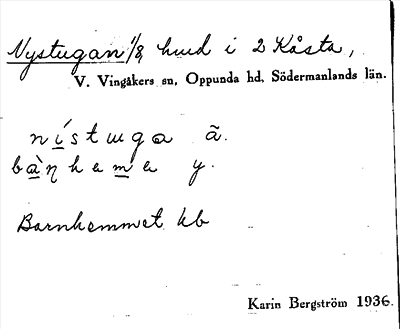 Nystugan 1/8, hmd i 2 Kåsta,
V. Vingåkers sn, Oppunda hd, Södermanlands län.
nístɯga ã.
bàŋhema y.
Barnhemmet kb
Karin Bergström 1936.